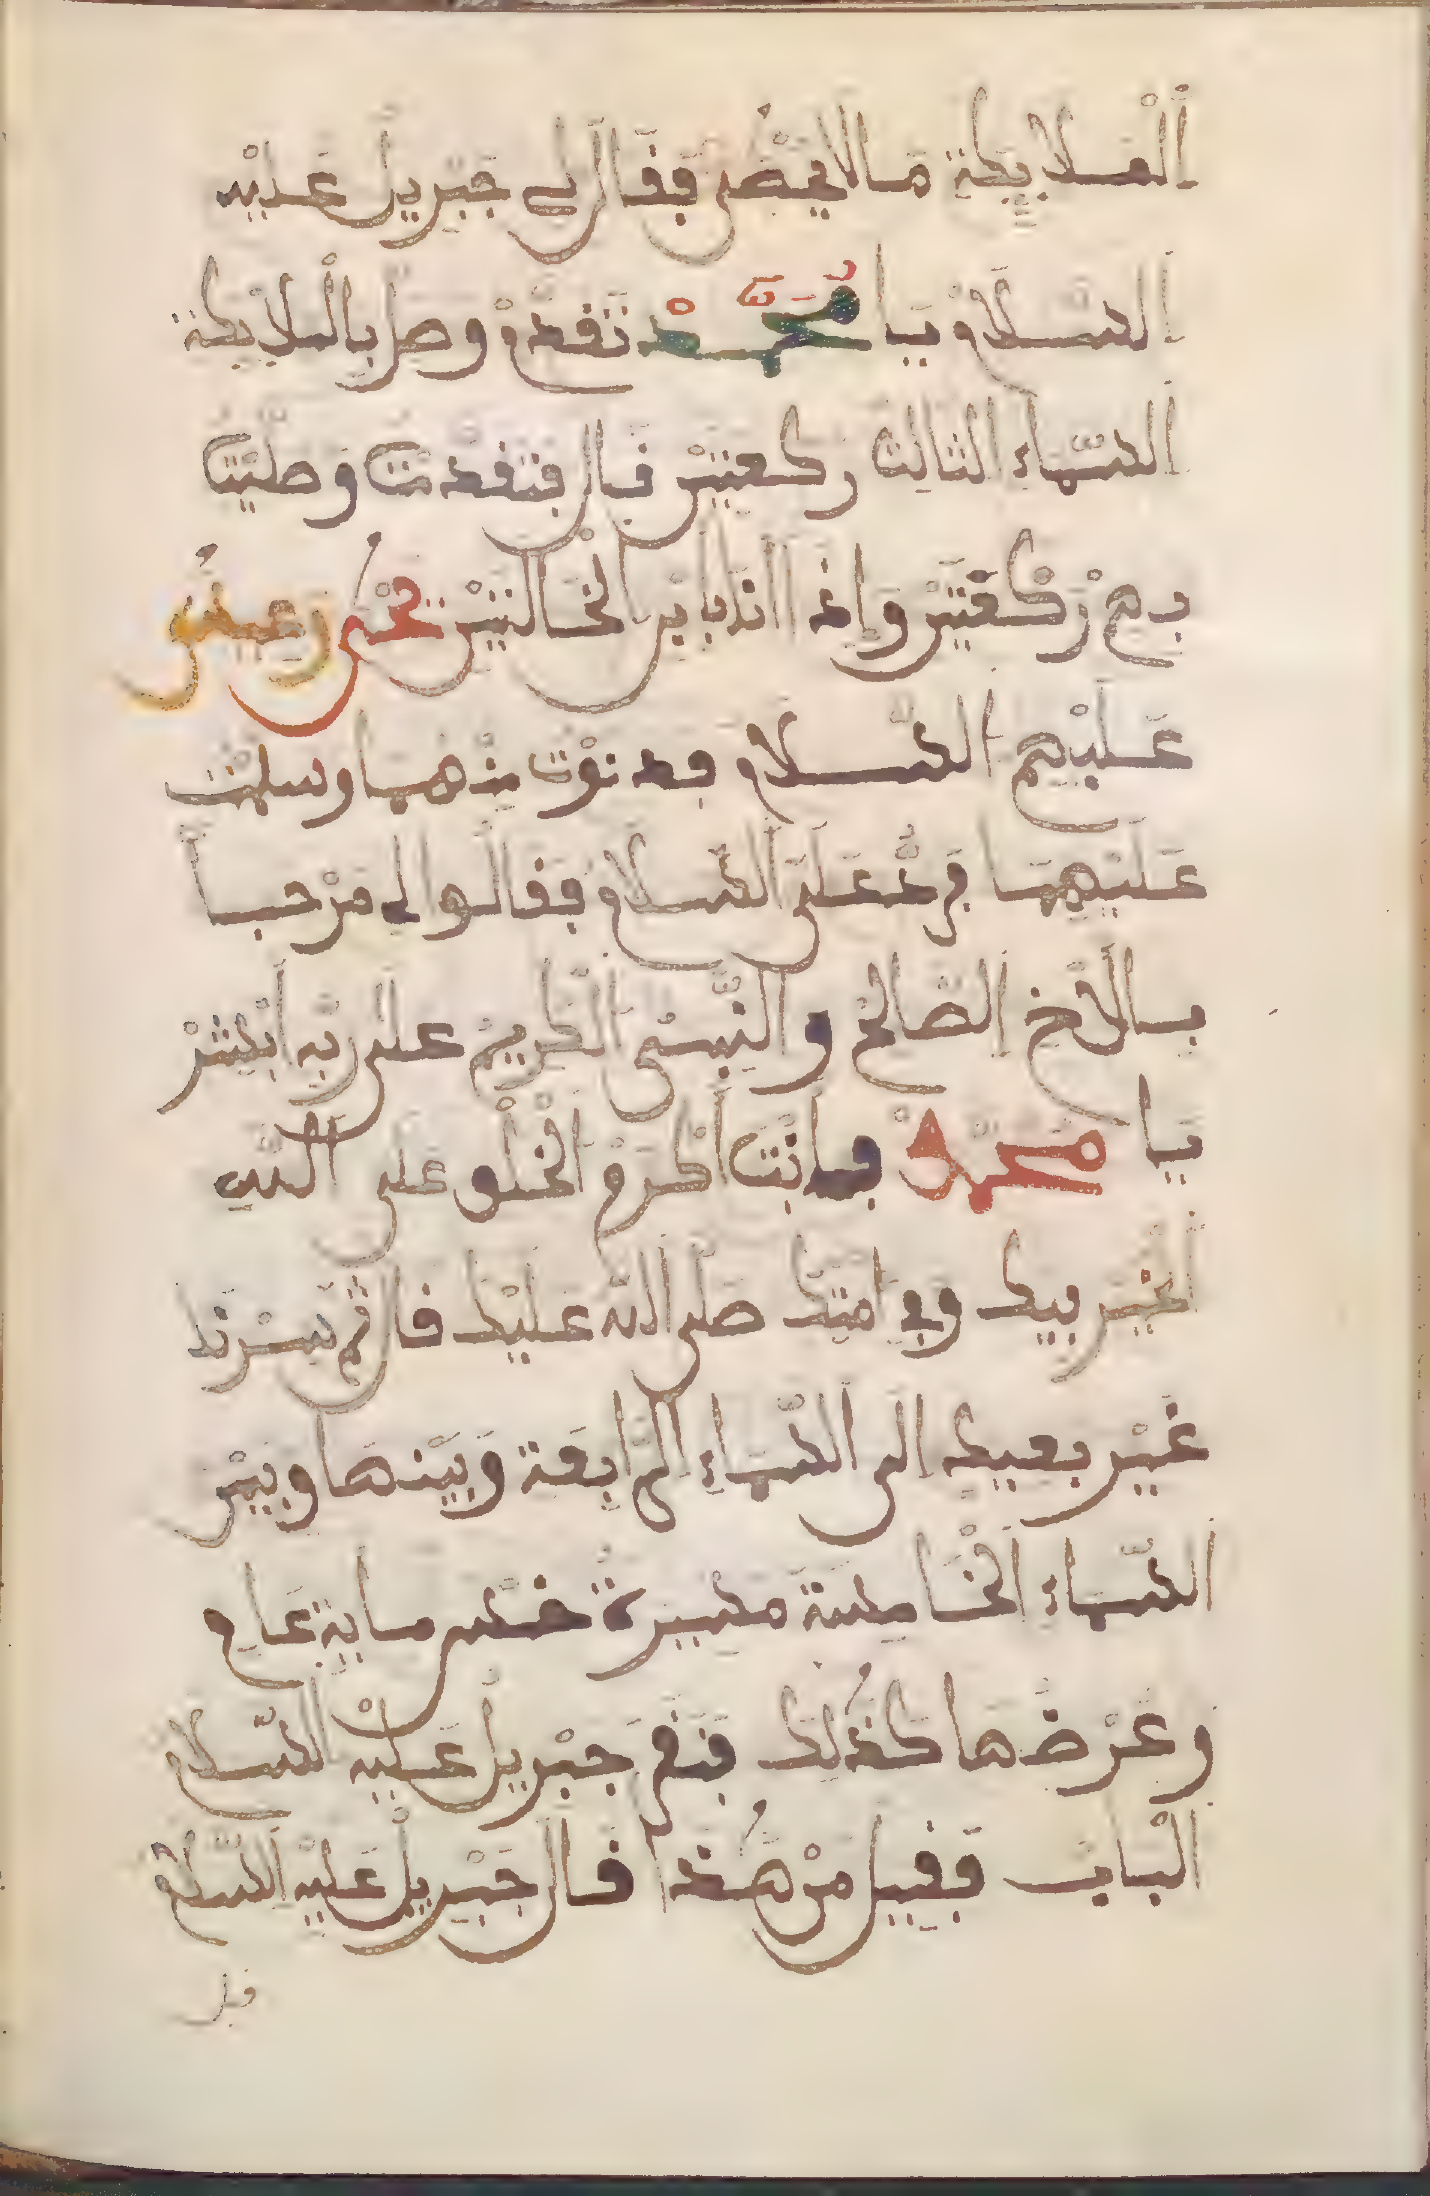 الملايكة ما لا يحصى فقال لي جبريل عليه
السلام يا محمد تقدم وصل بالملايكة
السماء الثالث ركعتين قال فتقدمت وصليت
بهم ركعتين وإذا انا بابن الخالتين يحيى وعيسى
عليهم السلام فدنوت منهما وسلمت
عليهما فرد على السلام فقالوا لي مرحبا
بالأخ الصالح والنبي الكريم على ربه أبشر
يا محمد فأنت أكرم الخلق على الله
الخير فيك وفي امتك صلى الله عليك قال ثم سرنا
غير بعيد الى السماء الرابعة وبينها وبين
السماء الخامسة مسيرة خمس ماية عام
وعرضها كذلك فنقر جبريل عليه السلام
الباب فقيل من هذا قال جبريل عليه السلام
قل